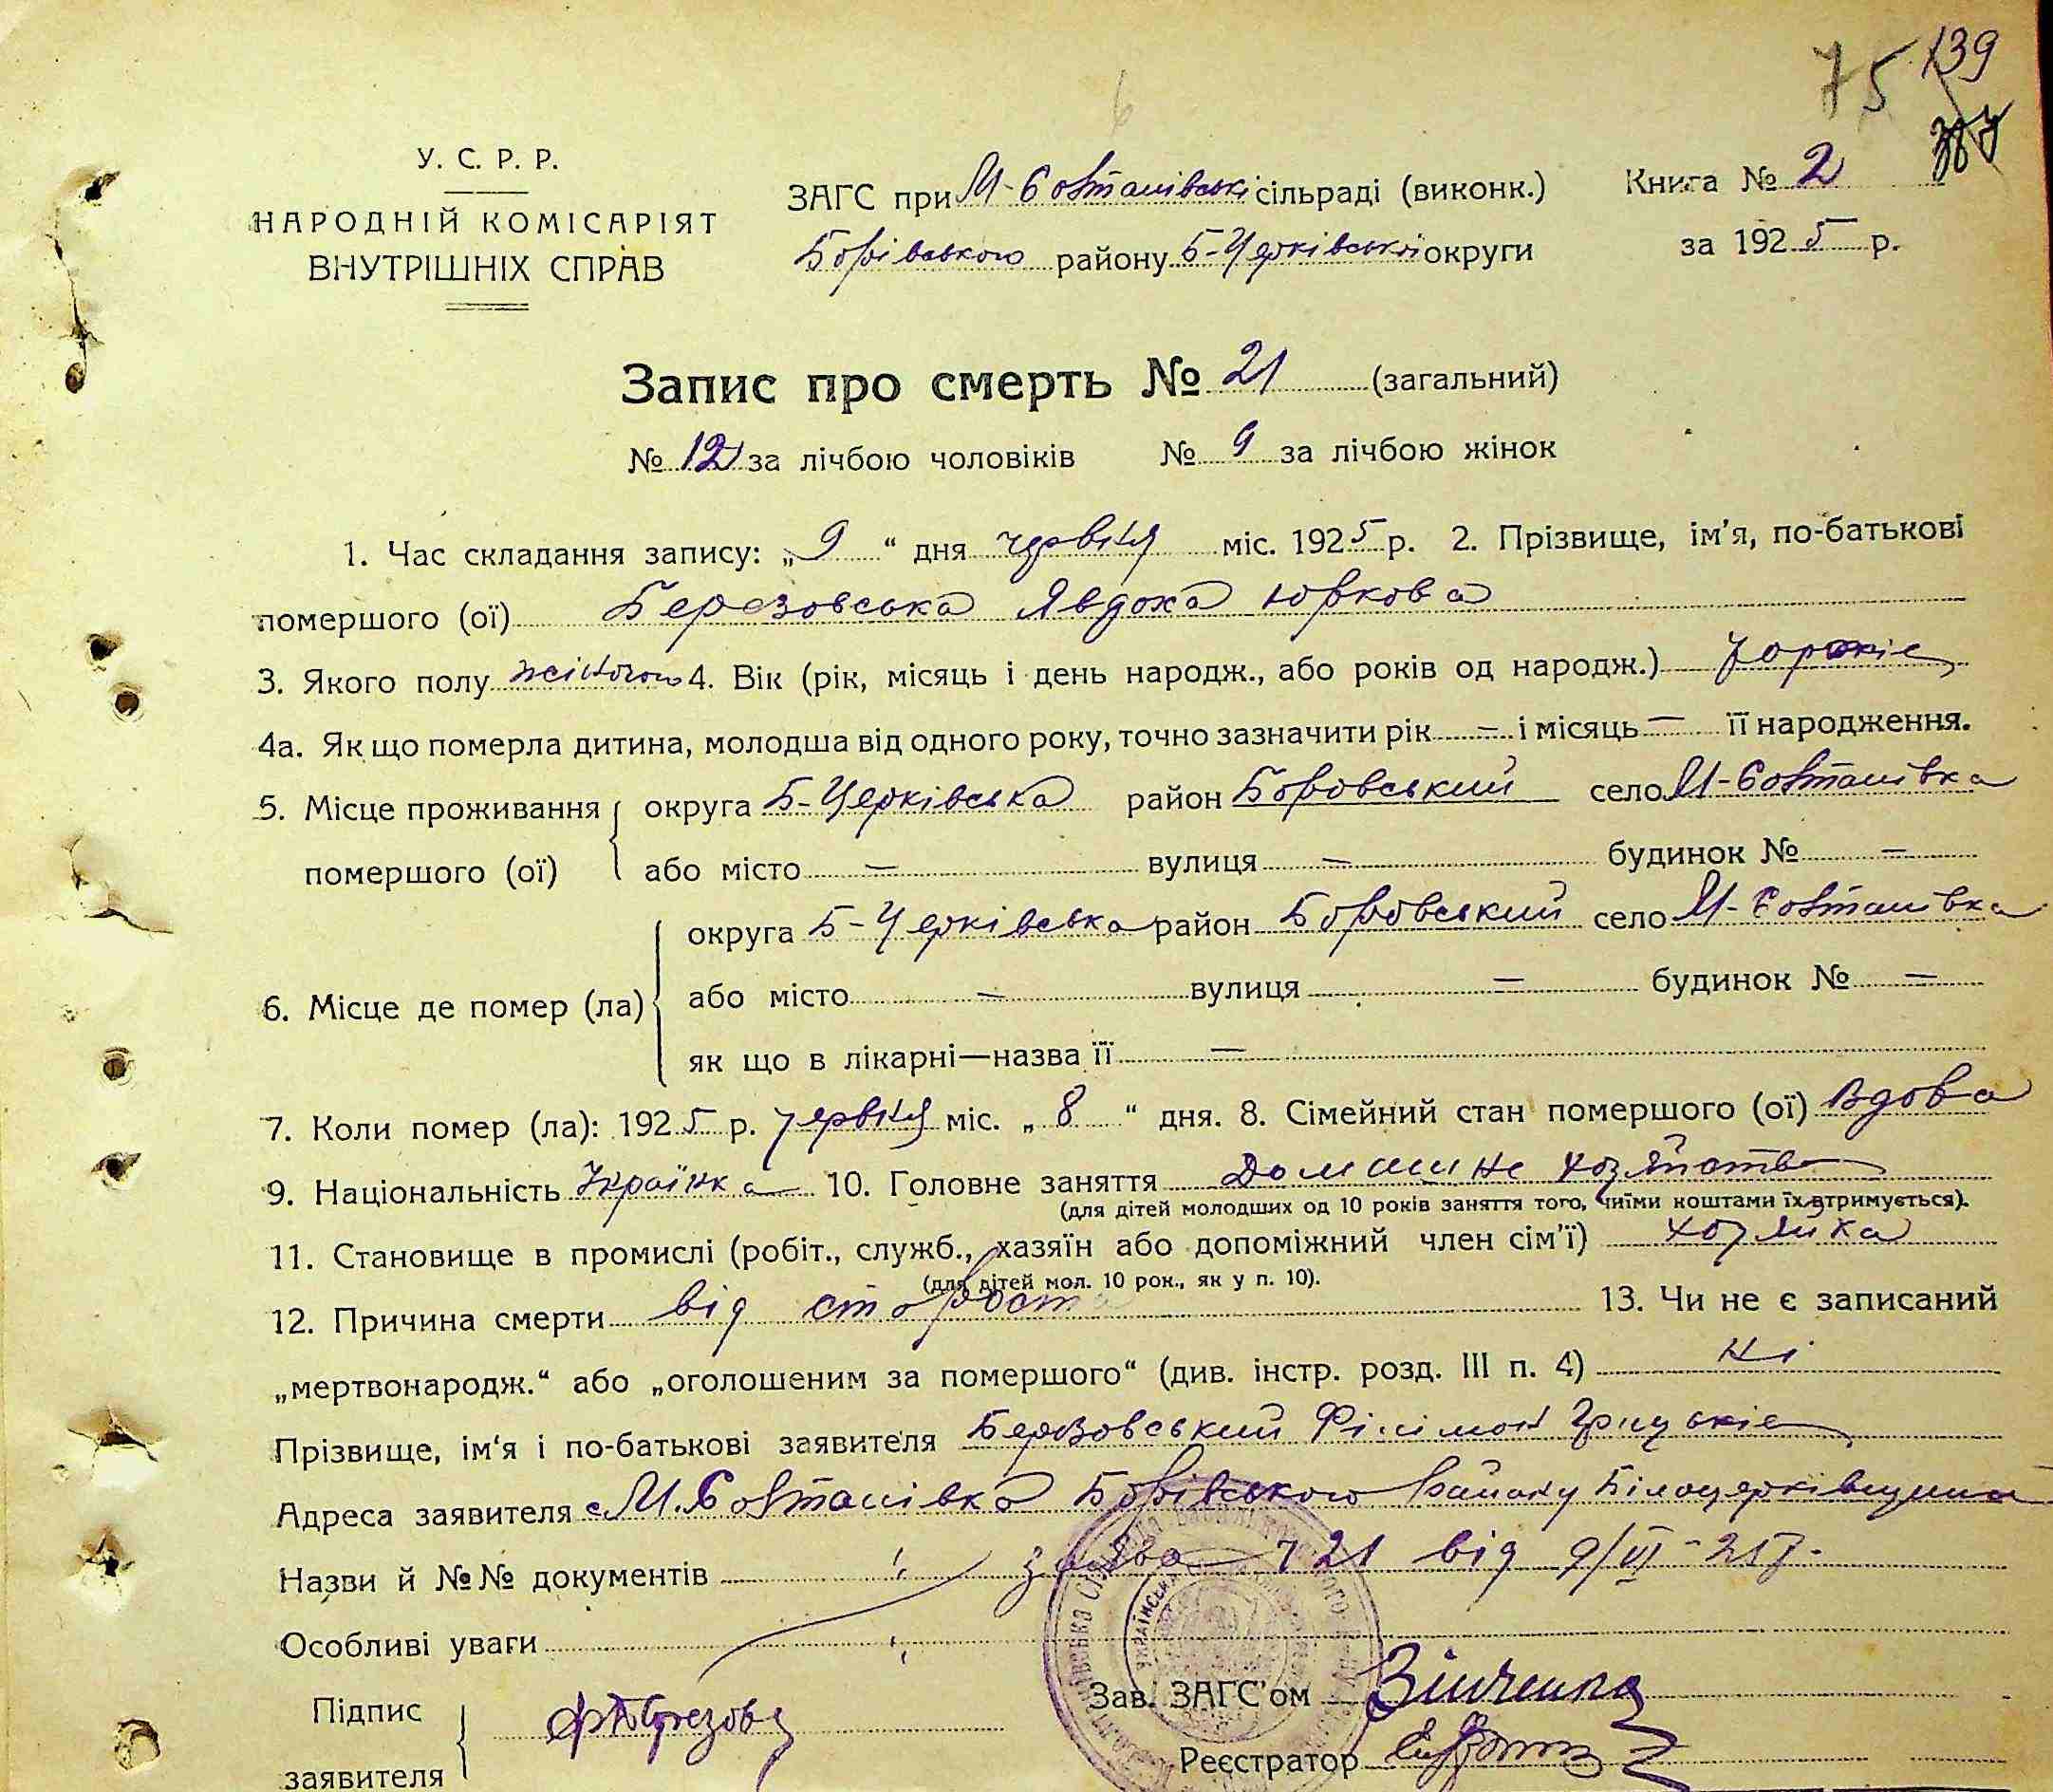 75 139
У. С. Р. Р.
НАРОДНІЙ КОМІСАРІЯТ
ВНУТРІШНІХ СПРАВ
ЗАГС при М-Совтанівські сільраді (виконк.)
Борівського району Б-Церківської округи
Книга № 2
за 1925 р.
Запис про смерть № 21 (загальний)
№ 12 за лічбою чоловіків № 9 за лічбою жінок
1. Час складання запису: „9“ дня червня міс. 1925 р. 2. Прізвище, ім’я, по-батькові
помершого (ої) Березовська Явдоха Юркова
3. Якого полу жіночого 4. Вік (рік, місяць і день народж., або років од народж.)
4а. Як що померла дитина, молодша від одного року, точно зазначити рік — і місяць — її народження.
5. Місце проживання
помершого (ої)
округа Б-Церківська район Боровський село М-Совтанівка
або місто — вулиця — будинок № —
6. Місце де помер (ла)
округа Б-Церківська район Боровський село М-Совтанівка
або місто — вулиця — будинок № —
як що в лікарні—назва її —
7. Коли помер (ла): 1925 р. червня міс. „8“ дня. 8. Сімейний стан помершого (ої) Вдова
9. Національність Українка 10. Головне заняття Домашне хозяйство
(для дітей молодших од 10 років заняття того, чиїми коштами їх втримується).
11. Становище в промислі (робіт., служб., хазяїн або допоміжний член сім’ї) хозяйка
(для дітей мол. 10 рок., як у п. 10).
12. Причина смерти від старости 13. Чи не є записаний
„мертвонародж.“ або „оголошеним за помершого“ (див. інстр. розд. III п. 4) ні
Прізвище, ім‘я і по-батькові заявителя Березовський Філімон
Адреса заявителя с М.Совтанівка Борівського району Білоцерківщина
Назви й №№ документів заява ч 21 від 9/VI-25р.
Особливі уваги
Підпис
заявителя
Зав. ЗАГС’ом Зінченко
Реєстратор